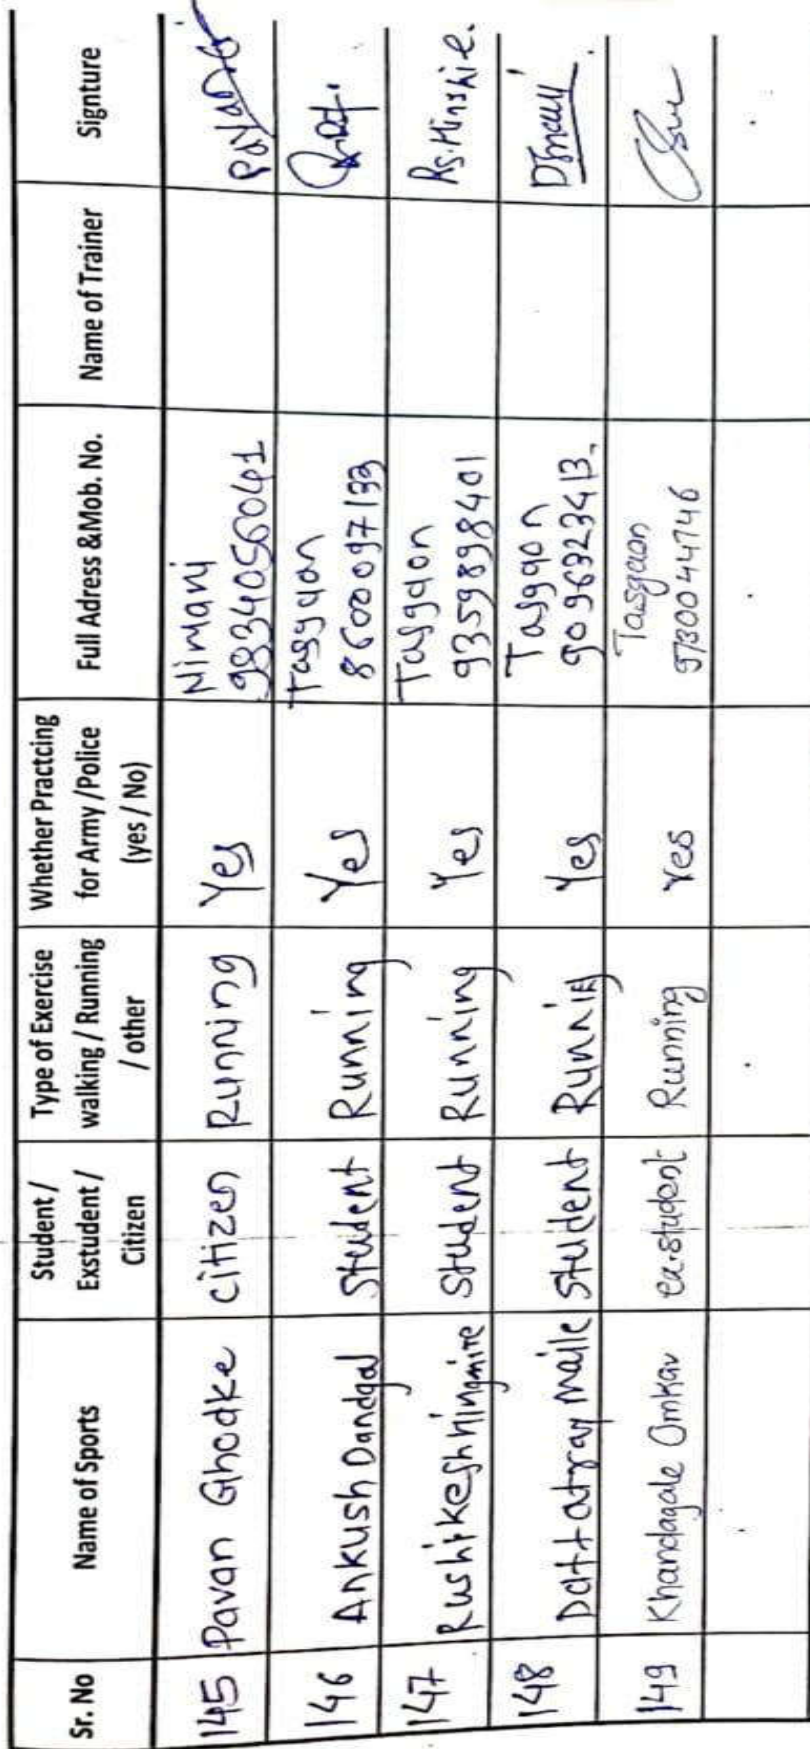 Sr. No Name of Sports Student / Exstudent / Citizen Type of Exercise walking / Running / other Whether Practcing for Army /Police (yes / No) Full Adress &Mob. No. Name of Trainer Signture
145 Pavan Ghodke citizen Running Yes Nimani 9834056041
146 Ankush Dandgal Student Running Yes Tasgaon 8600097133
147 Rushikesh Hingmire Student Running Yes Tasgaon 9359898401
148 Dattatray Maile Student Running Yes Tasgaon 9096323413.
149 Khandagale Omkar ex.student Running Yes Tasgaon 9730044746